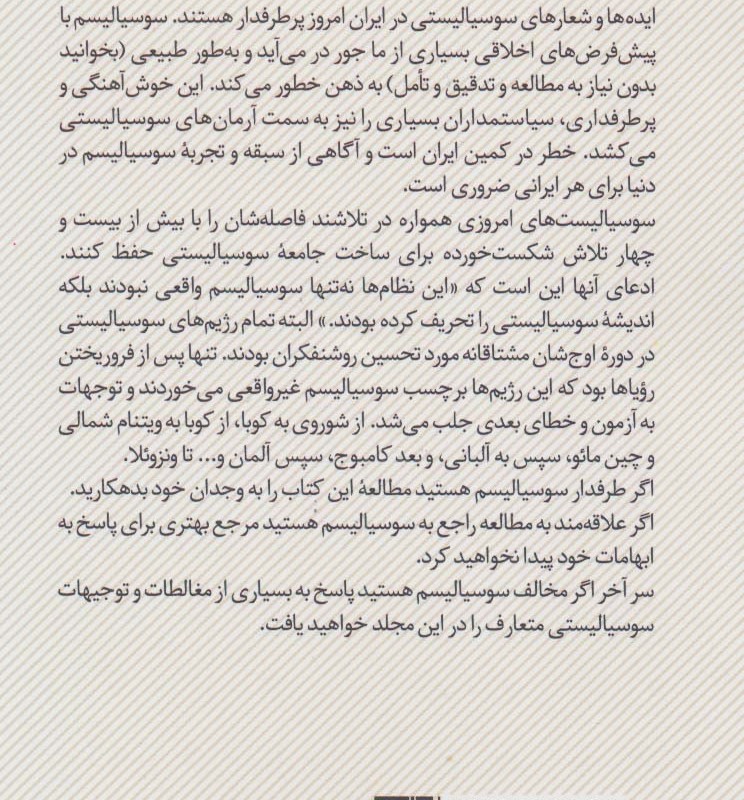 ایده‌ها و شعارهای سوسیالیستی در ایران امروز پرطرفدار هستند. سوسیالیسم با
پیش‌فرض‌های اخلاقی بسیاری از ما جور در می‌آید و به‌طور طبیعی (بخوانید
بدون نیاز به مطالعه و تدقیق و تأمل) به ذهن خطور می‌کند. این خوش‌آهنگی و
پرطرفداری، سیاستمداران بسیاری را نیز به سمت آرمان‌های سوسیالیستی
می‌کشد. خطر در کمین ایران است و آگاهی از سبقه و تجربهٔ سوسیالیسم در
دنیا برای هر ایرانی ضروری است.
سوسیالیست‌های امروزی همواره در تلاشند فاصله‌شان را با بیش از بیست و
چهار تلاش شکست‌خورده برای ساخت جامعهٔ سوسیالیستی حفظ کنند.
ادعای آنها این است که «این نظام‌ها نه‌تنها سوسیالیسم واقعی نبودند بلکه
اندیشهٔ سوسیالیستی را تحریف کرده بودند.» البته تمام رژیم‌های سوسیالیستی
در دورهٔ اوج‌شان مشتاقانه مورد تحسین روشنفکران بودند. تنها پس از فروریختن
رؤیاها بود که این رژیم‌ها برچسب سوسیالیسم غیرواقعی می‌خوردند و توجهات
به آزمون و خطای بعدی جلب می‌شد. از شوروی به کوبا، از کوبا به ویتنام شمالی
و چین مائو، سپس به آلبانی، و بعد کامبوج، سپس آلمان و... تا ونزوئلا.
اگر طرفدار سوسیالیسم هستید مطالعهٔ این کتاب را به وجدان خود بدهکارید.
اگر علاقه‌مند به مطالعه راجع به سوسیالیسم هستید مرجع بهتری برای پاسخ به
ابهامات خود پیدا نخواهید کرد.
سر آخر اگر مخالف سوسیالیسم هستید پاسخ به بسیاری از مغالطات و توجیهات
سوسیالیستی متعارف را در این مجلد خواهید یافت.